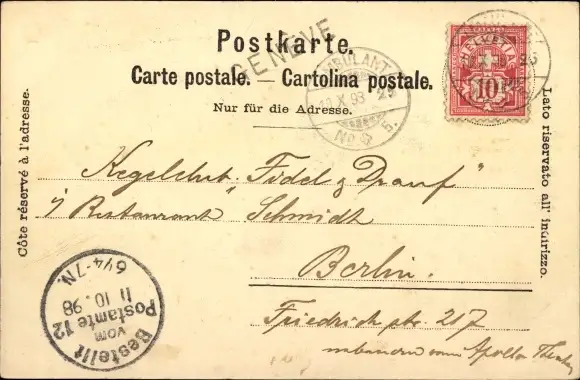 Postkarte.
GENEVE
Carte postale. — Cartolina postale.
Nur für die Adresse.
AMBULANT
10. X. 98
No 5.
HELVETIA
10
Côte réservé à l'adresse.
Lato riservato all' indirizzo.
Kegelclub „Fidel & Drauf"
i/ Restaurant Schmidt
Berlin.
Friedrich str. 217
nebenan vom Apollo Theater
Bestellt
vom
Postamte 12
11. 10. 98
6¼-7N.